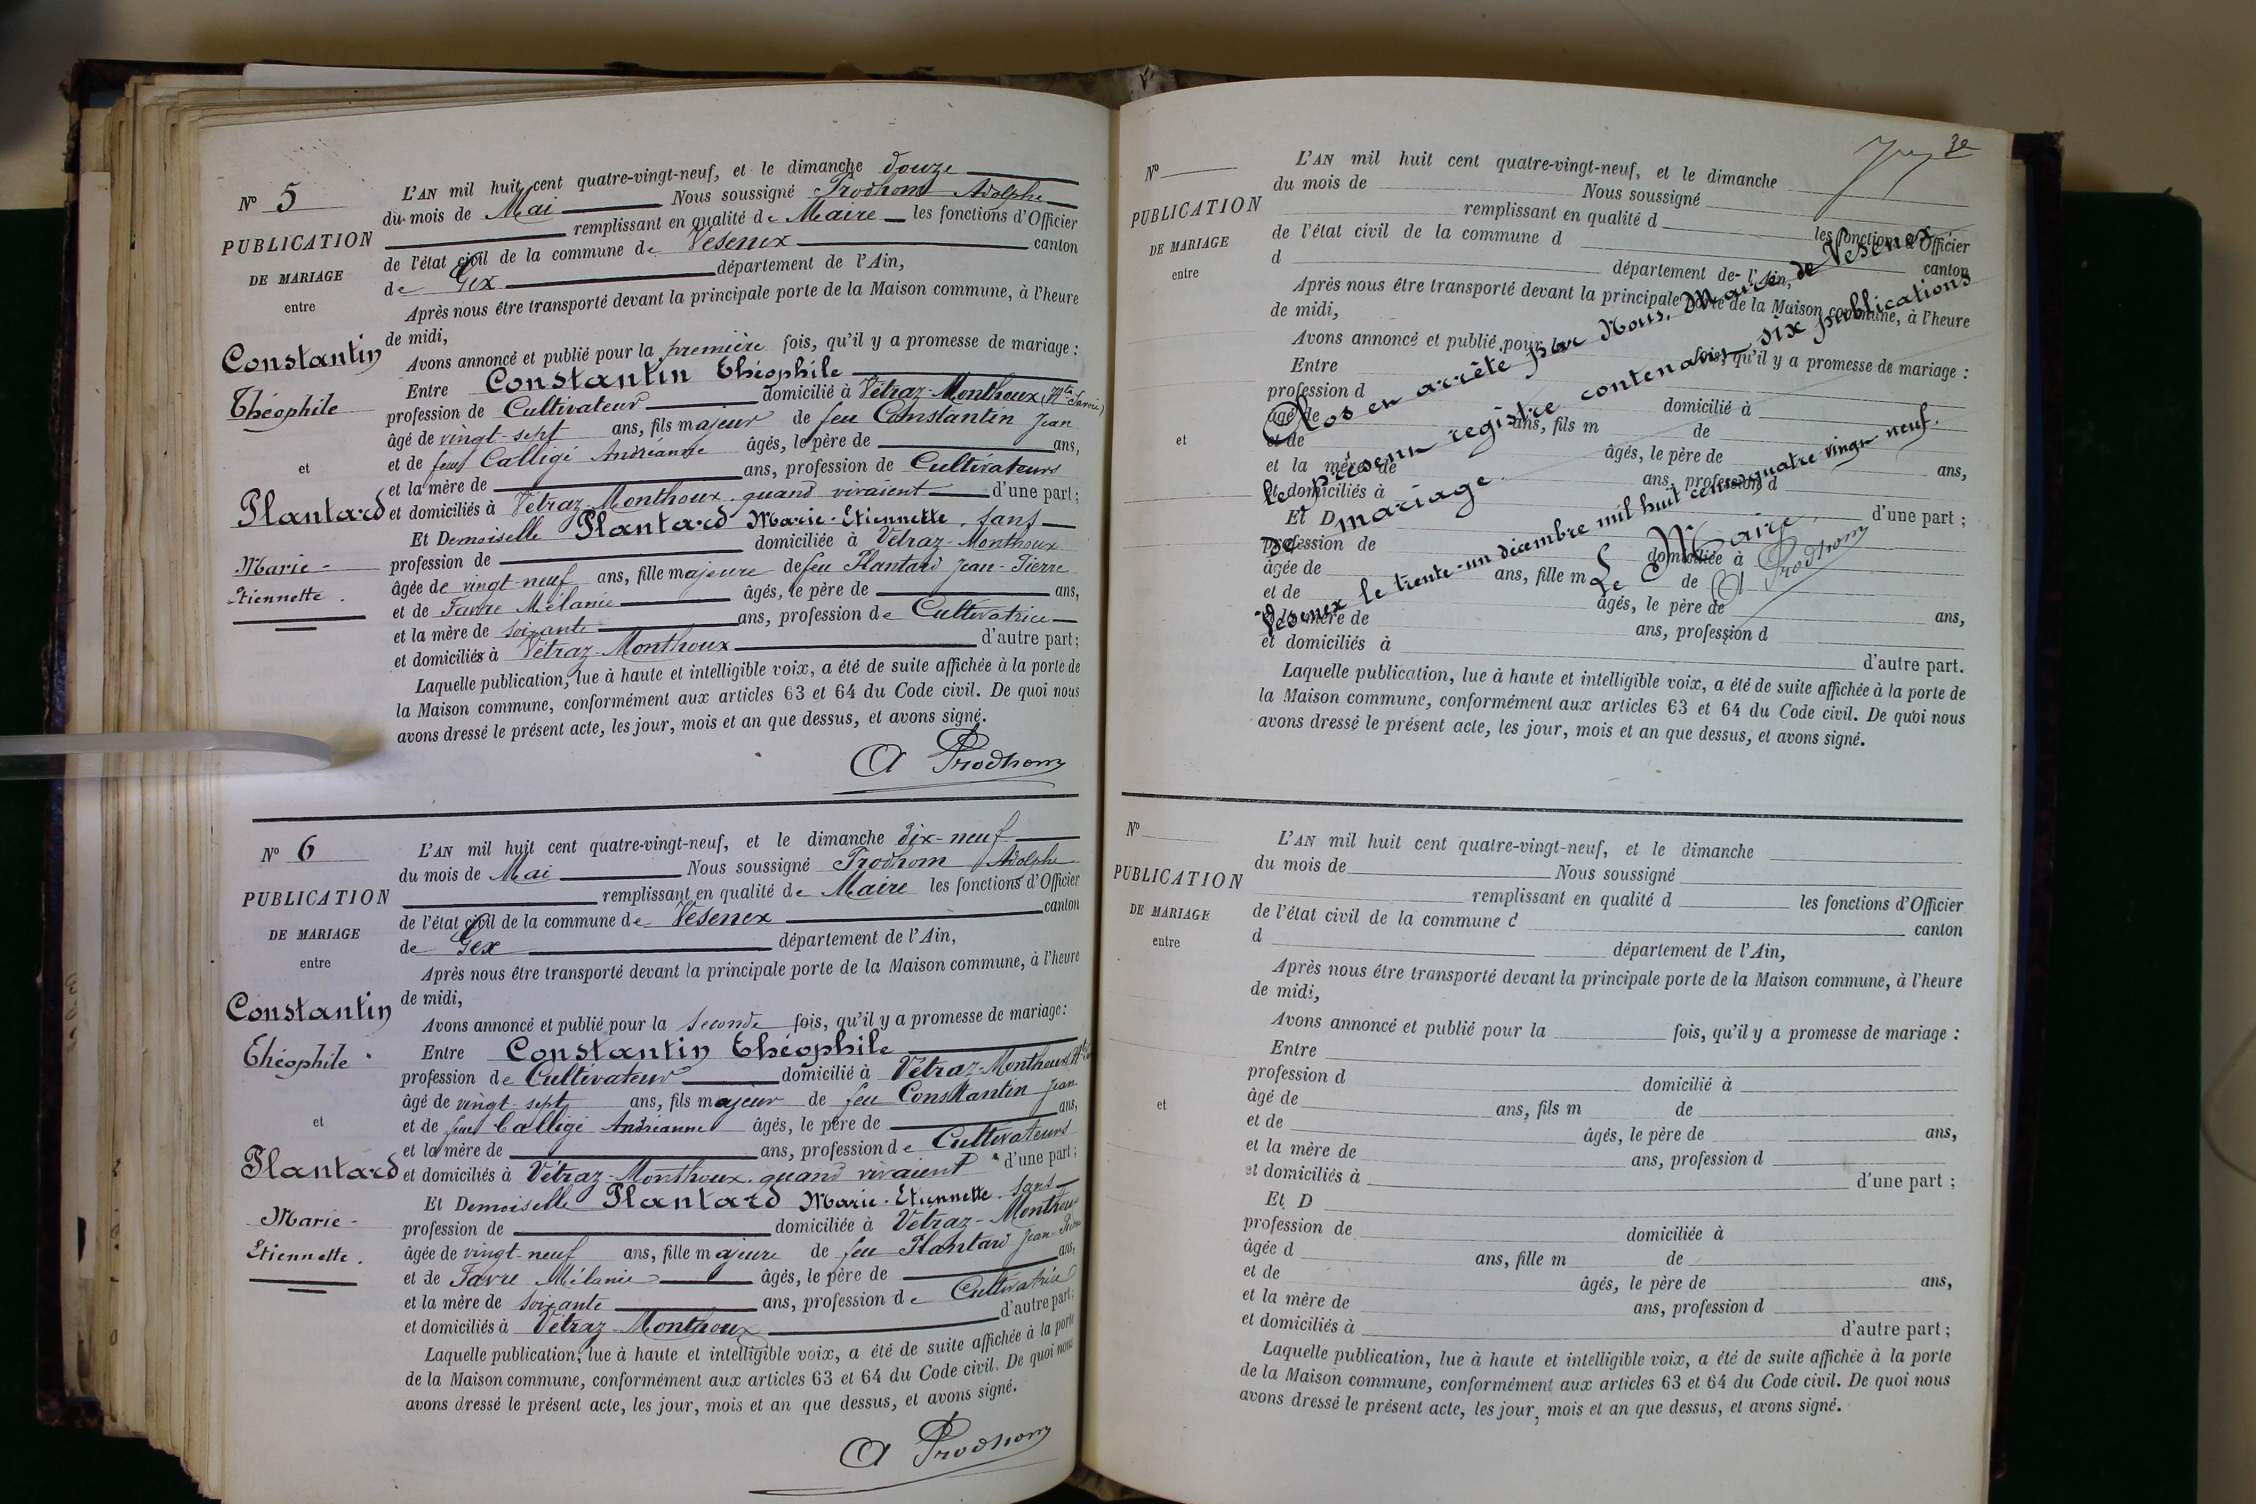 N° 5
PUBLICATION
DE MARIAGE
entre
Constantin
Théophile
et
Plantard
Marie-
Etiennette.
L'AN mil huit cent quatre-vingt-neuf, et le dimanche douze
du mois de Mai Nous soussigné Prodhom Adolphe
remplissant en qualité de Maire les fonctions d'Officier
de l'état civil de la commune de Vesenex canton
de Gex département de l'Ain,
Après nous être transporté devant la principale porte de la Maison commune, à l'heure
de midi,
Avons annoncé et publié pour la première fois, qu'il y a promesse de mariage :
Entre Constantin Théophile
profession de Cultivateur domicilié à Vétraz-Monthoux (Hte Savoie)
âgé de vingt-sept ans, fils majeur de feu Constantin Jean
et de feue Calligé Andréanne âgés, le père de ans,
et la mère de ans, profession de Cultivateurs
et domiciliés à Vétraz-Monthoux quand vivaient d'une part;
Et Demoiselle Plantard Marie-Etiennette, sans
profession de domiciliée à Vétraz-Monthoux
âgée de vingt-neuf ans, fille majeure de feu Plantard Jean-Pierre
et de Favre Mélanie âgés, le père de ans,
et la mère de soixante ans, profession de Cultivatrice
et domiciliés à Vétraz-Monthoux d'autre part;
Laquelle publication, lue à haute et intelligible voix, a été de suite affichée à la porte de
la Maison commune, conformément aux articles 63 et 64 du Code civil. De quoi nous
avons dressé le présent acte, les jour, mois et an que dessus, et avons signé.
A Prodhom
N° 6
PUBLICATION
DE MARIAGE
entre
Constantin
Théophile
et
Plantard
Marie-
Etiennette.
L'AN mil huit cent quatre-vingt-neuf, et le dimanche dix-neuf
du mois de Mai Nous soussigné Prodhom Adolphe
remplissant en qualité de Maire les fonctions d'Officier
de l'état civil de la commune de Vesenex canton
de Gex département de l'Ain,
Après nous être transporté devant la principale porte de la Maison commune, à l'heure
de midi,
Avons annoncé et publié pour la seconde fois, qu'il y a promesse de mariage:
Entre Constantin Théophile
profession de Cultivateur domicilié à Vétraz-Monthoux
âgé de vingt-sept ans, fils majeur de feu Constantin Jean
et de feue Calligé Andréanne âgés, le père de ans,
et la mère de ans, profession de Cultivateurs
et domiciliés à Vétraz-Monthoux quand vivaient d'une part;
Et Demoiselle Plantard Marie-Etiennette sans
profession de domiciliée à Vétraz-Monthoux
âgée de vingt-neuf ans, fille majeure de feu Plantard Jean-Pierre
et de Favre Mélanie âgés, le père de ans,
et la mère de soixante ans, profession de Cultivatrice
et domiciliés à Vétraz-Monthoux d'autre part;
Laquelle publication, lue à haute et intelligible voix, a été de suite affichée à la porte
de la Maison commune, conformément aux articles 63 et 64 du Code civil. De quoi nous
avons dressé le présent acte, les jour, mois et an que dessus, et avons signé.
A Prodhom
3e
N°
PUBLICATION
DE MARIAGE
entre
et
L'AN mil huit cent quatre-vingt-neuf, et le dimanche
du mois de Nous soussigné
remplissant en qualité d les fonctions d'Officier
de l'état civil de la commune d canton
d département de l'Ain,
Après nous être transporté devant la principale porte de la Maison commune, à l'heure
de midi,
Avons annoncé et publié pour la fois, qu'il y a promesse de mariage :
Entre
profession d domicilié à
âgé de ans, fils m de
et de âgés, le père de ans,
et la mère de ans, profession d
et domiciliés à d'une part ;
Et D
profession de domiciliée à
âgée de ans, fille m de
et de âgés, le père de ans,
et la mère de ans, profession d
et domiciliés à d'autre part.
Laquelle publication, lue à haute et intelligible voix, a été de suite affichée à la porte de
la Maison commune, conformément aux articles 63 et 64 du Code civil. De quoi nous
avons dressé le présent acte, les jour, mois et an que dessus, et avons signé.
Clos en arrêté par Nous, Maire de Vesenex
le présent registre contenant six publications
de mariage.
Vesenex le trente-un décembre mil huit cent quatre vingt neuf.
Le Maire
A Prodhom
N°
PUBLICATION
DE MARIAGE
entre
et
L'AN mil huit cent quatre-vingt-neuf, et le dimanche
du mois de Nous soussigné
remplissant en qualité d les fonctions d'Officier
de l'état civil de la commune d canton
d département de l'Ain,
Après nous être transporté devant la principale porte de la Maison commune, à l'heure
de midi,
Avons annoncé et publié pour la fois, qu'il y a promesse de mariage :
Entre
profession d domicilié à
âgé de ans, fils m de
et de âgés, le père de ans,
et la mère de ans, profession d
et domiciliés à d'une part ;
Et D
profession de domiciliée à
âgée d ans, fille m de
et de âgés, le père de ans,
et la mère de ans, profession d
et domiciliés à d'autre part ;
Laquelle publication, lue à haute et intelligible voix, a été de suite affichée à la porte
de la Maison commune, conformément aux articles 63 et 64 du Code civil. De quoi nous
avons dressé le présent acte, les jour, mois et an que dessus, et avons signé.